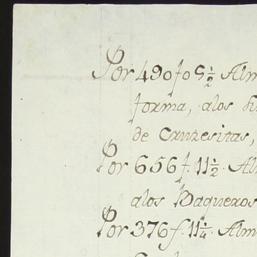 Por 490 f. 5½ Alm
forma, a los
de Cruzesitas,
Por 656 f. 11½ Alm
a los Baqueros
Por 376 f. 11¼ Alm